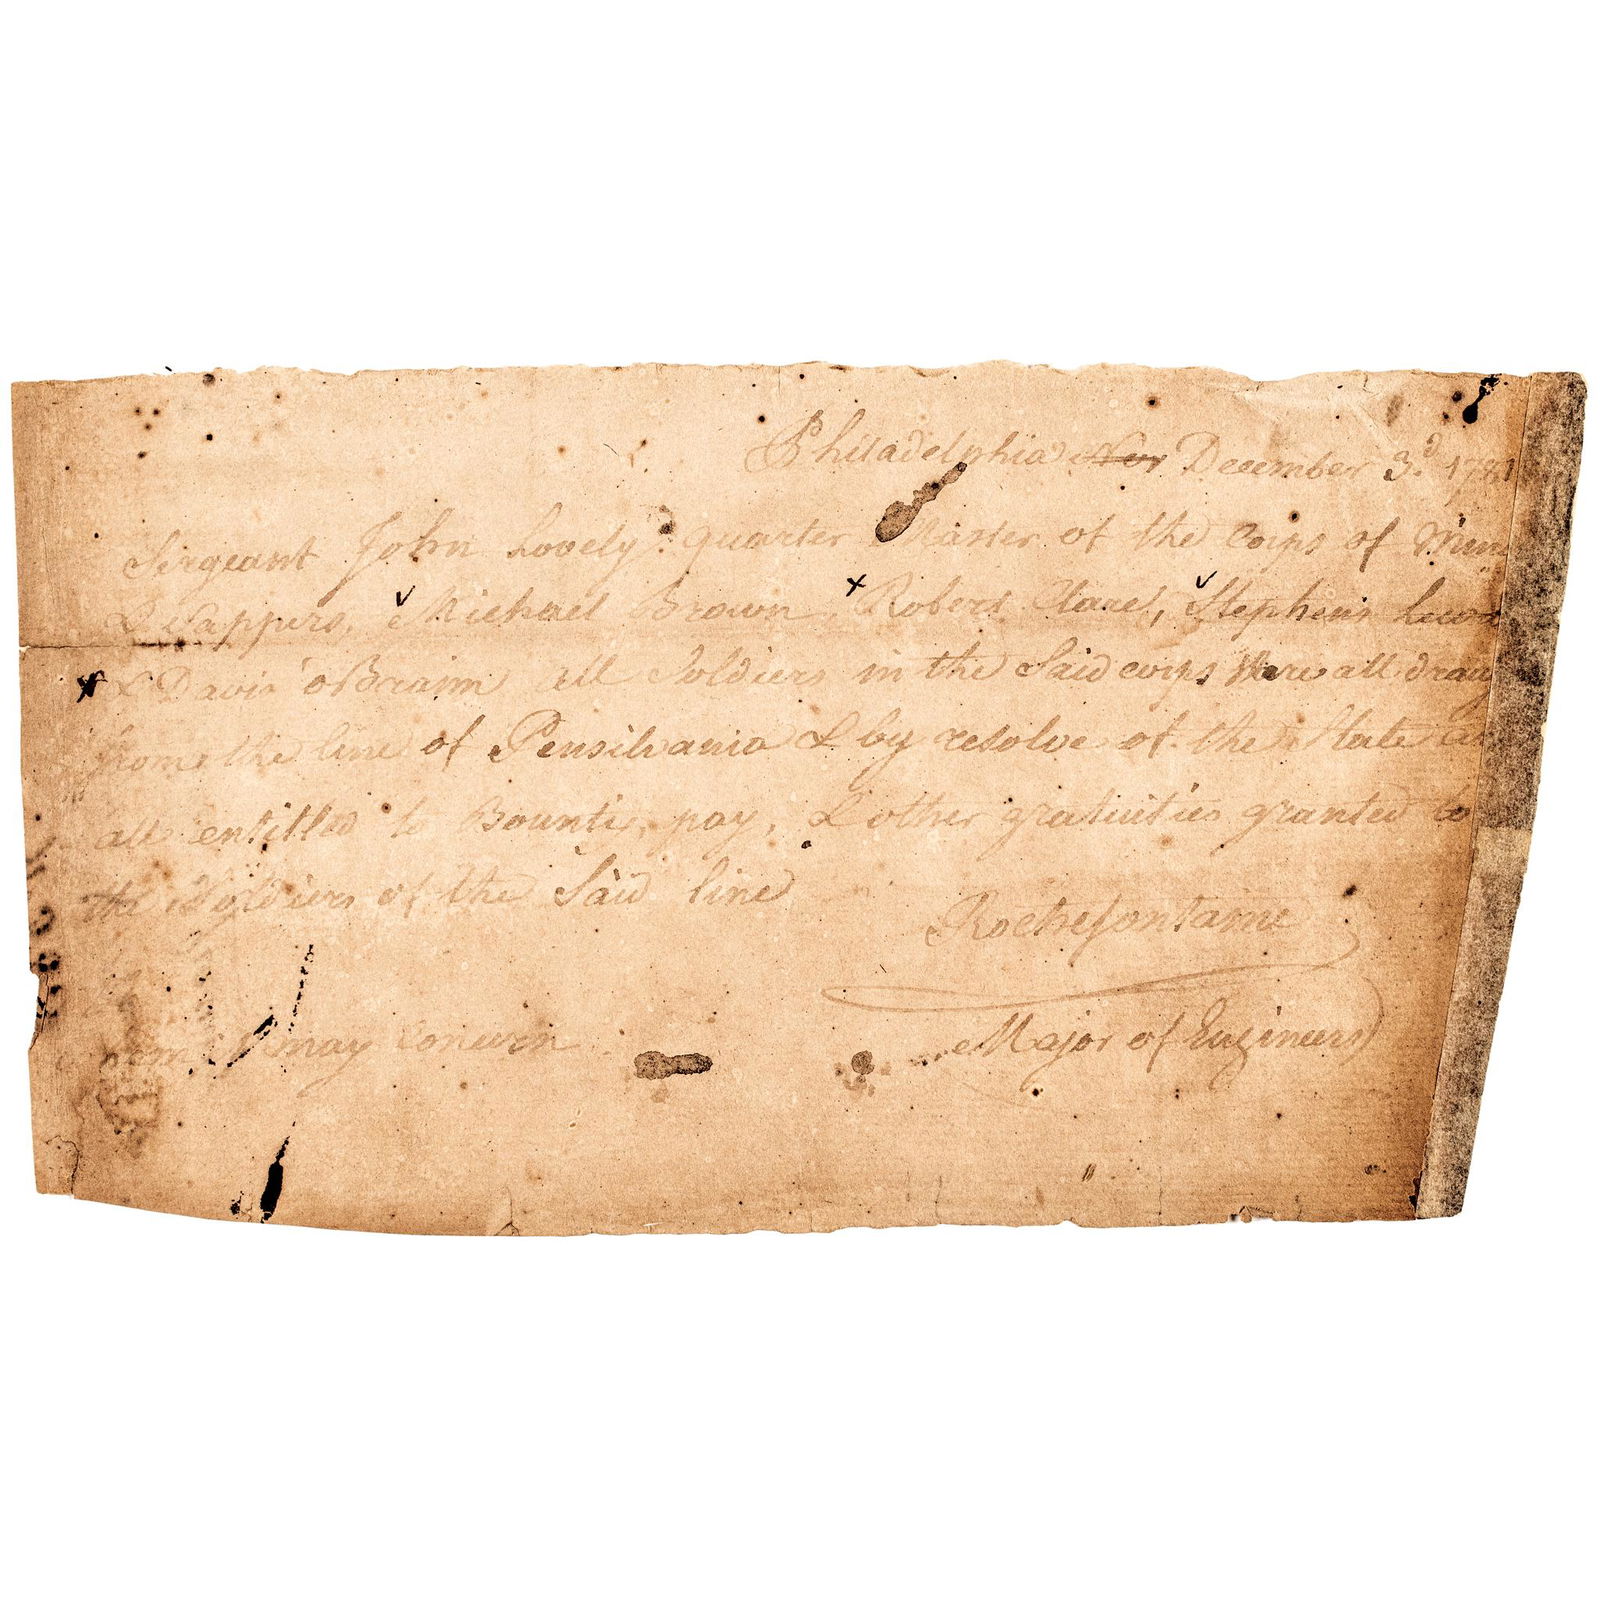 Philadelphia Nov December 3.d 1781
Sergeant John Lovely quarter Master of the Corps of Min
& Sappers, Michael Brown, Robert Clare, Stephen
& David óBrainn all Soldiers in the Said corps were all draw
from the line of Pensilvania & by resolve of the State
all entitled to Bounty, pay, & other gratuities granted to
the Soldiers of the Said line
Rochefontaine
may Concern
Major of Engineers